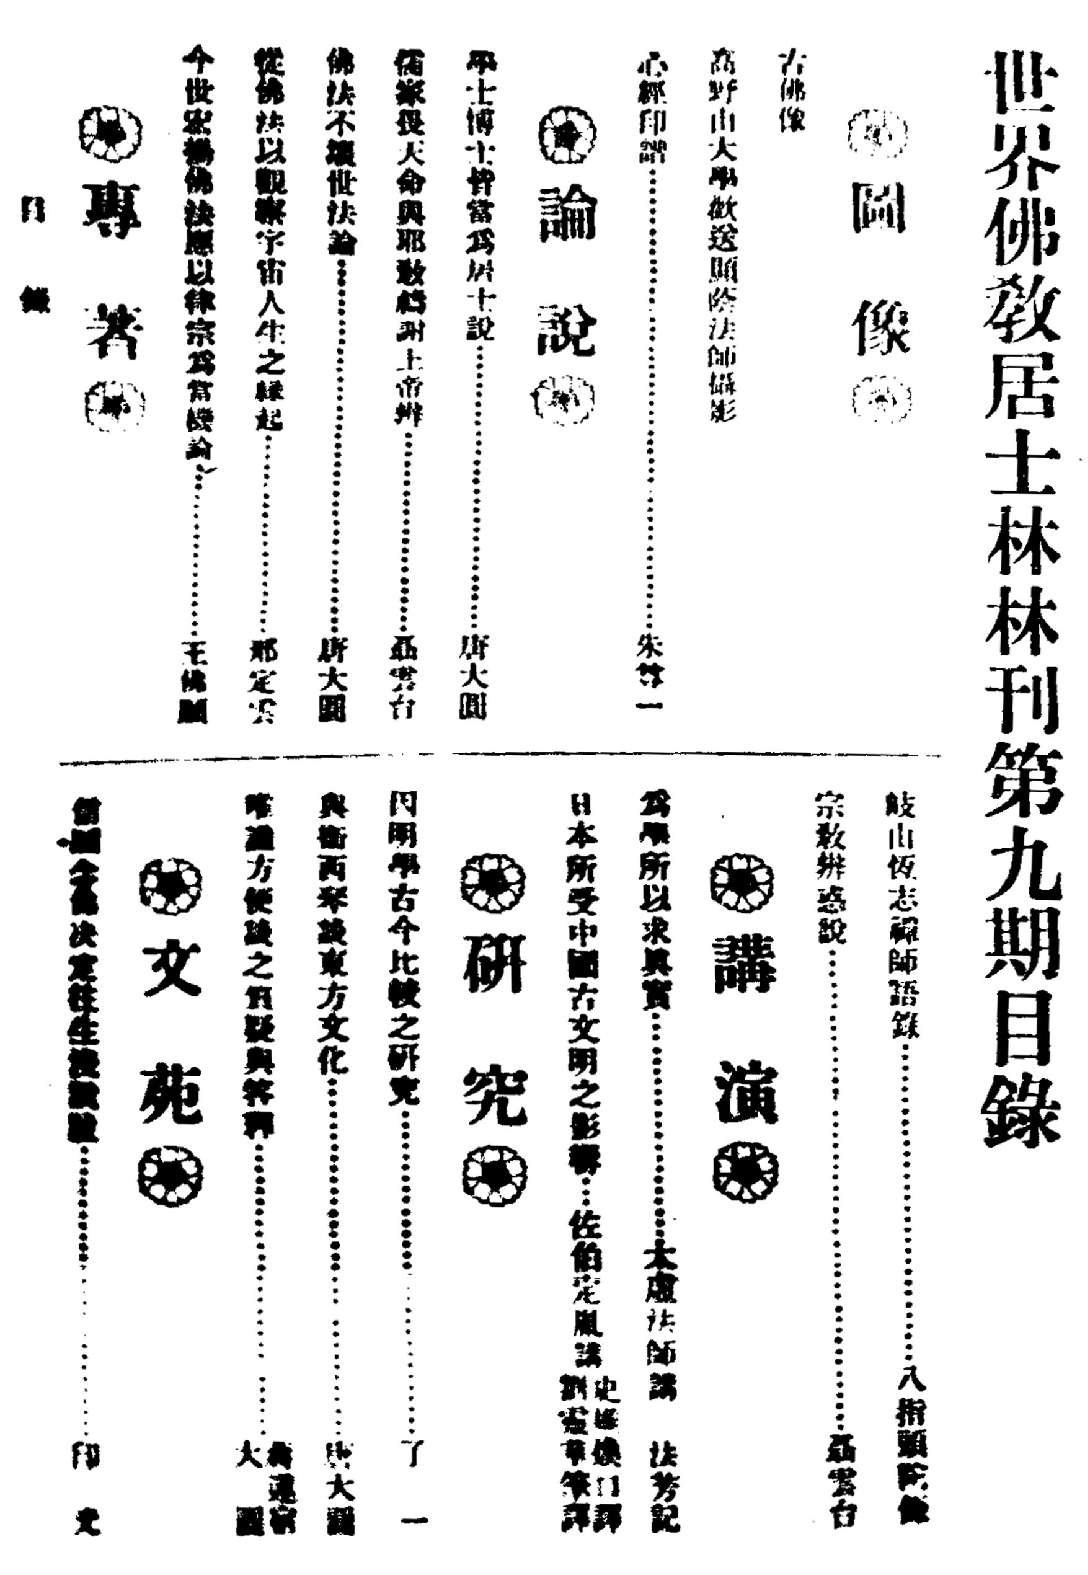 世界佛敎居士林林刊第九期目錄
圖像
古佛像
高野山大學歡送顯蔭法師攝影
心經印譜………朱尊一
論說
學士博士皆當爲居士說………唐大圓
儒家畏天命與耶敎禱謝上帝辨………聶雲台
佛法不壞世法論………唐大圓
從佛法以觀察宇宙人生之緣起………鄧定雲
今世宏揚佛法應以律宗爲當機論………王佛願
專著
岐山恆志禪師語錄………八指頭陀
宗敎辨惑說………聶雲台
講演
爲學所以求眞實………太虛法師講 法芳記
日本所受中國古文明之影響…佐伯定胤講
口譯
筆譯
研究
因明學古今比較之研究………了一
與衞西琴談東方文化………唐大圓
唯識方便談之質疑與答釋………
大圓
文苑
念佛決定往生
印光
目錄